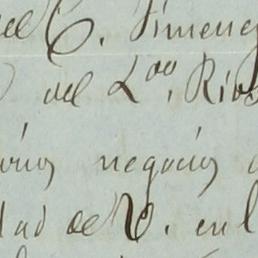 del C. Jimene
del Ldo. Riba
varios negocios
dad de V. en l